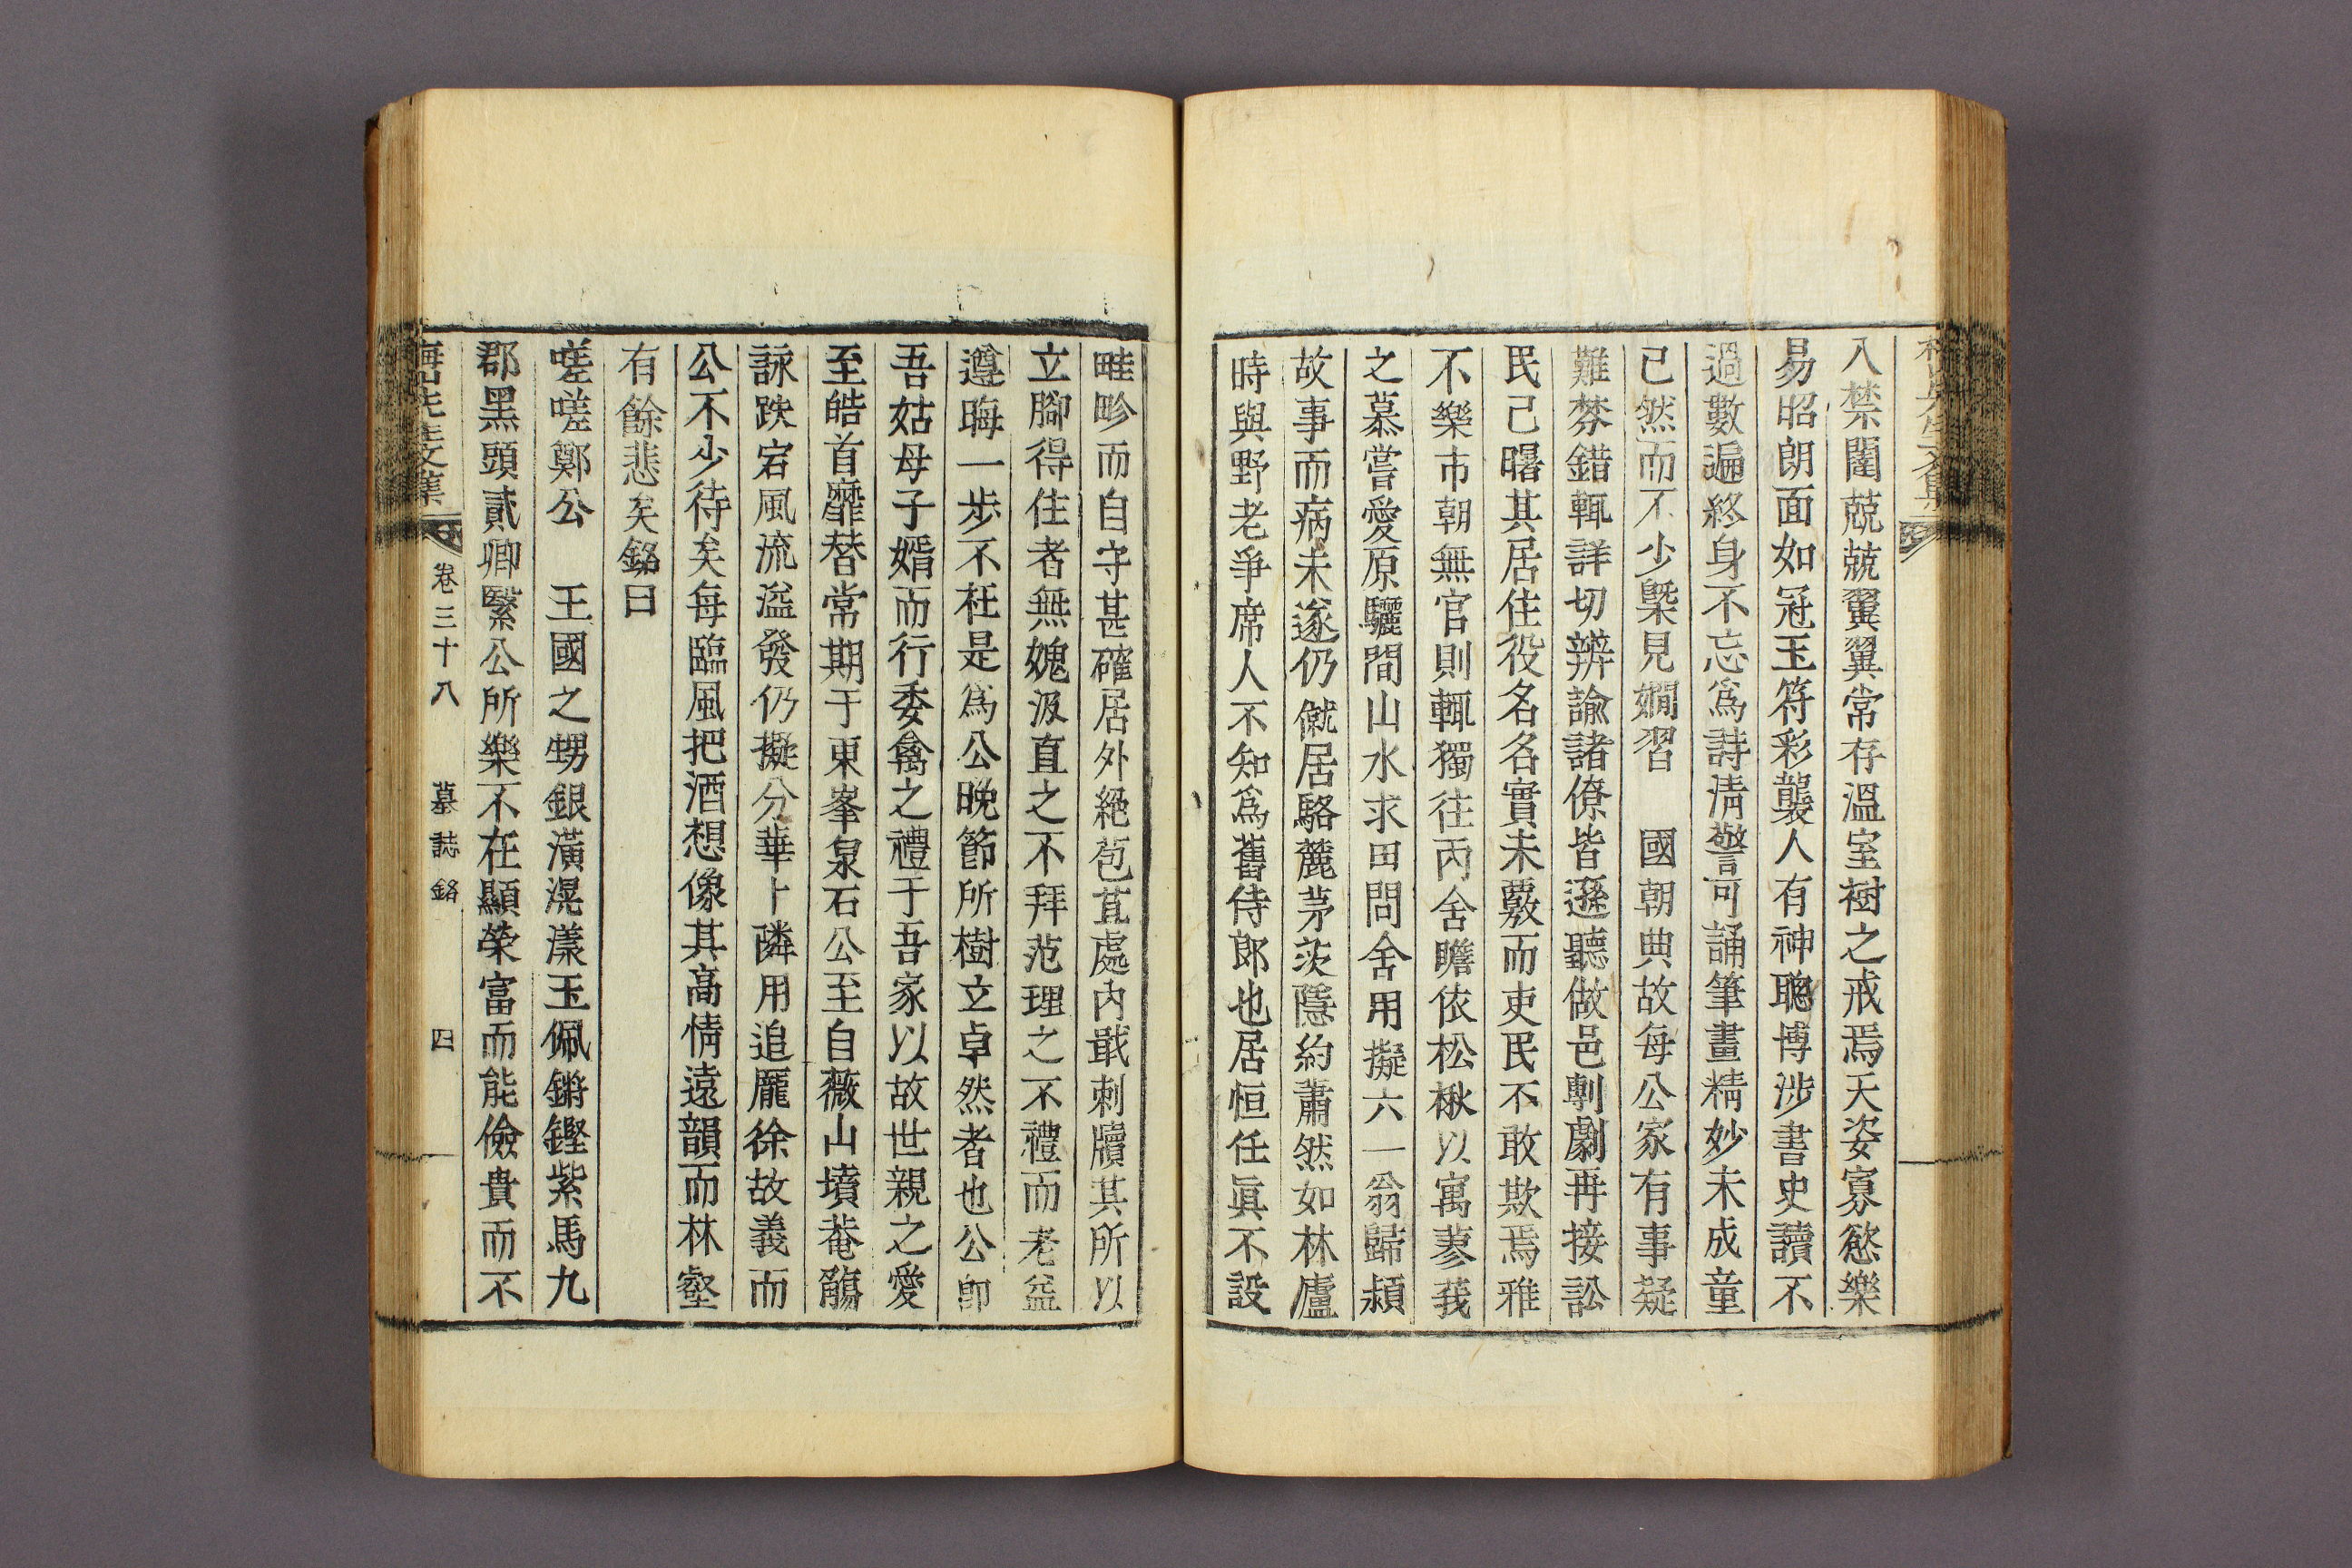 入禁闥兢兢翼翼常存溫室樹之戒焉天姿寡慾樂
易昭朗面如冠玉符彩襲人有神聰博涉書史讀不
過數遍終身不忘爲詩淸警可誦筆畫精妙未成童
已然而不少槩見嫺習　國朝典故每公家有事疑
難棼錯輒詳切辨諭諸僚皆遜聽做邑剸劇再接訟
民已曙其居住役名名實未覈而吏民不敢欺焉雅
不樂市朝無官則輒獨往丙舍瞻依松楸以寓蓼莪
之慕嘗愛原驪間山水求田問舍用擬六一翁歸潁
故事而病未遂仍僦居駱麓茅茨隱約蕭然如林廬
時與野老爭席人不知爲舊侍郞也居恒任眞不設
畦畛而自守甚確居外絕苞苴處內戢刺牘其所以
立腳得住者無媿汲直之不拜范理之不禮而老益
遵晦一步不枉是爲公晩節所樹立卓然者也公卽
吾姑母子婿而行委禽之禮于吾家以故世親之愛
至皓首靡替常期于東峯泉石公至自薇山墳菴觴
詠跌宕風流溢發仍擬分華卜隣用追龐徐故義而
公不少待矣每臨風把酒想像其高情遠韻而林壑
有餘悲矣銘曰
嗟嗟鄭公　王國之甥銀潢滉漾玉佩鏘鏗紫馬九
郡黑頭貳卿繄公所樂不在顯榮富而能儉貴而不
梅山先生文集　卷三十八　墓誌銘　四